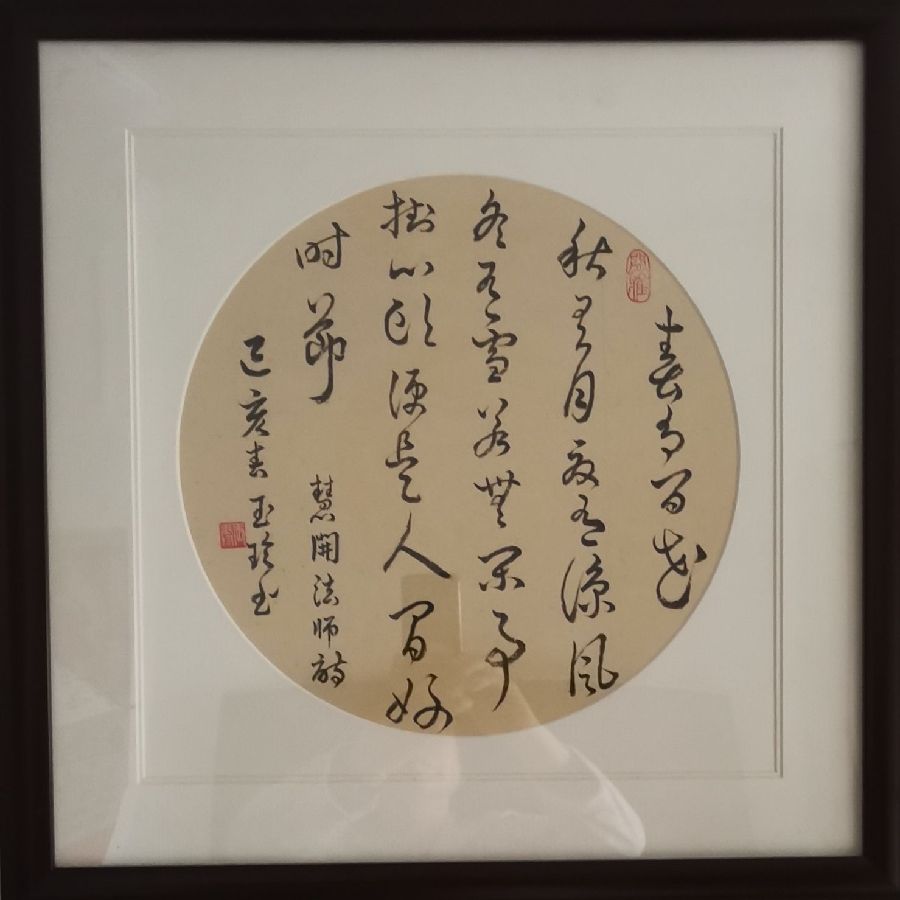 春有百花
秋有月夏有涼风
冬有雪若無闲事
掛心头便是人间好
时節
慧開法师诗
己亥春玉珍书